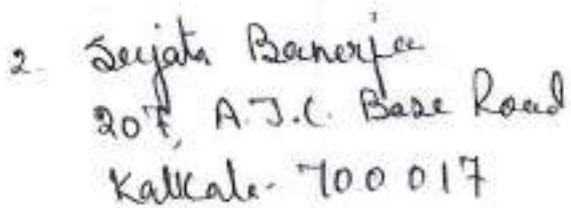 2. Sujata Banerjee
207, A.J.C. Bose Road
Kolkata - 700 017